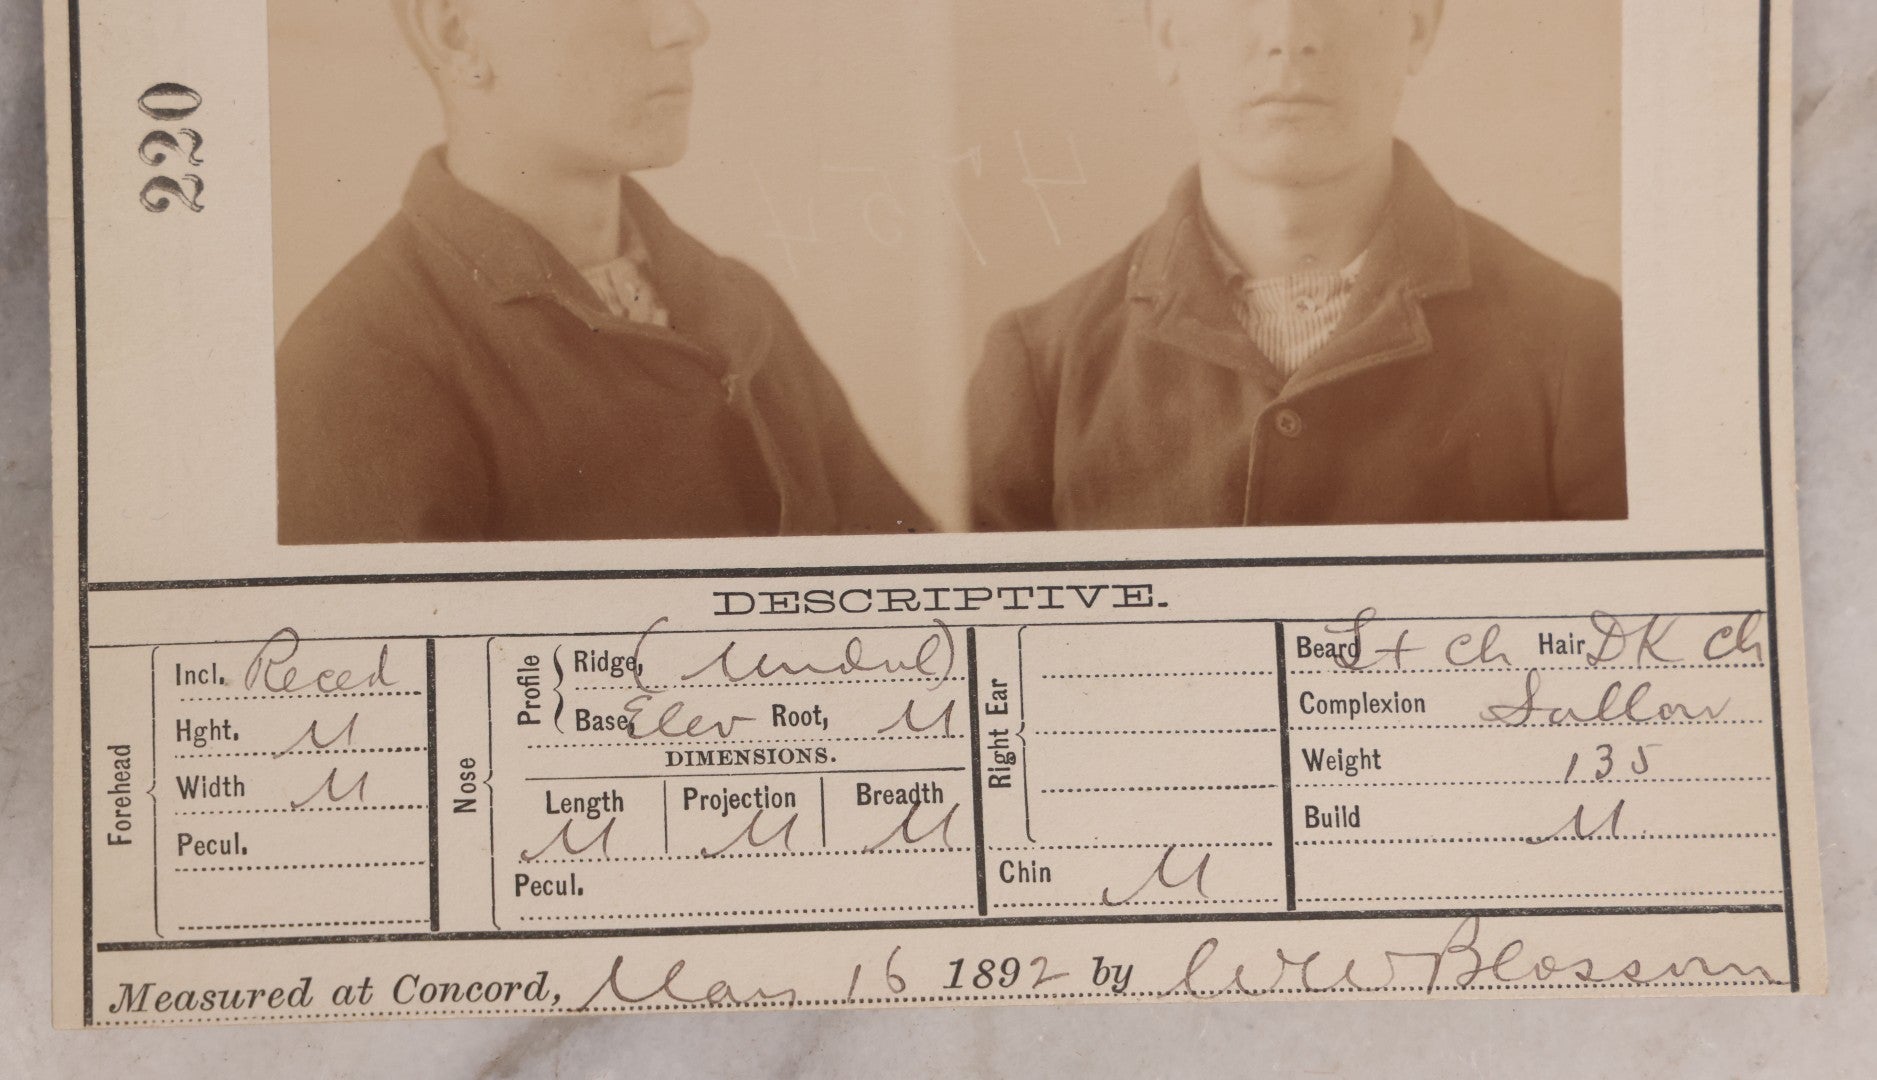 220
4754
DESCRIPTIVE.
Forehead
Incl. Reced
Hght. M
Width M
Pecul.
Nose
Profile
Ridge, (Undul)
Base, Elev Root, M
DIMENSIONS.
Length Projection Breadth
M M M
Pecul.
Right Ear
Chin M
Beard Lt Ch Hair DK Ch
Complexion Sallow
Weight 135
Build M.
Measured at Concord, Mar 16 1892 by W W Blossom